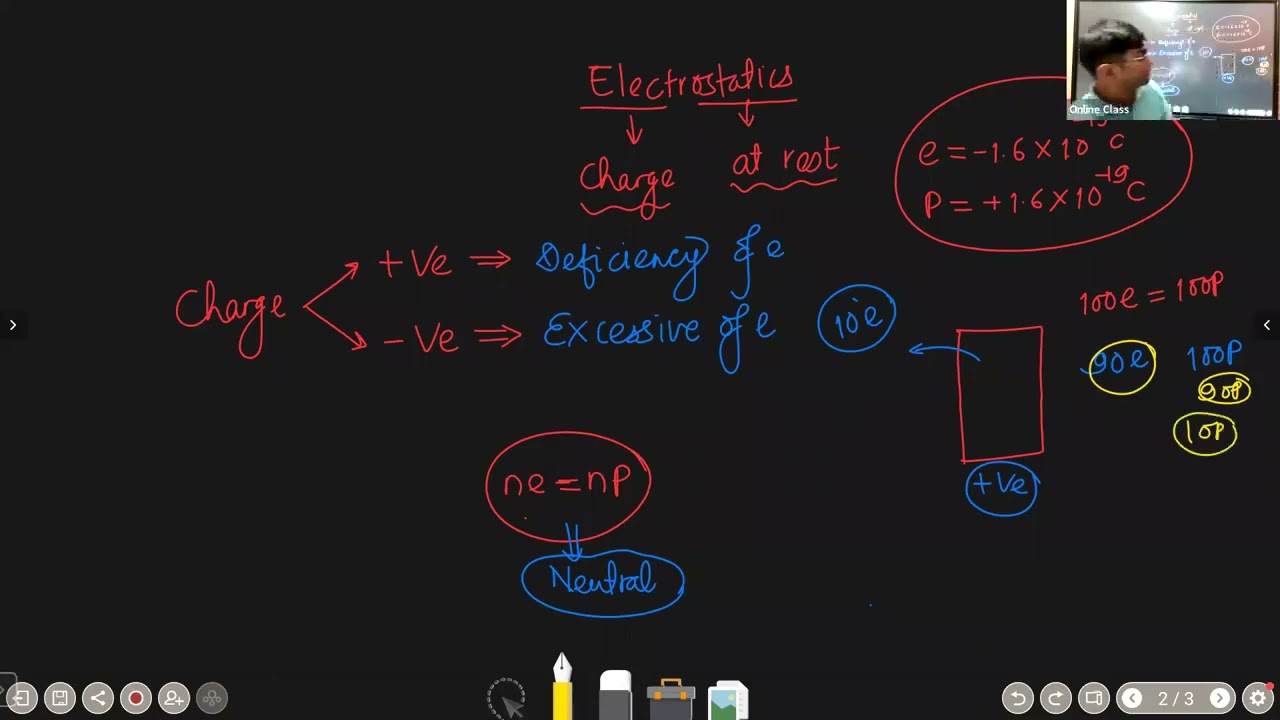 Electrostatics
Charge
at rest
e = -1.6 × 10 C
P = +1.6 × 10⁻¹⁹ C
Charge
+Ve ⇒ Deficiency of e
-Ve ⇒ Excessive of e
10e
100e = 100P
90e 100P
90P
10P
+Ve
ne = nP
Neutral
Online Class
2 / 3